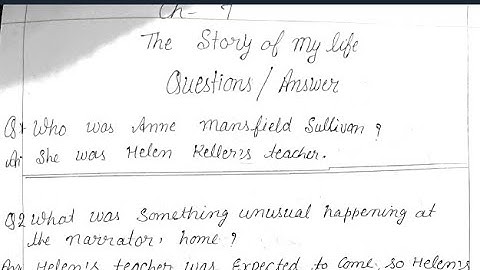 Ch- 7
The Story of my life
Questions/Answer
Q1 Who was Anne Mansfield Sullivan?
An: She was Helen Keller's teacher.
Q2 What was something unusual happening at
the narrator, home?
An: Helen's teacher was Expected to Come, so Helen's